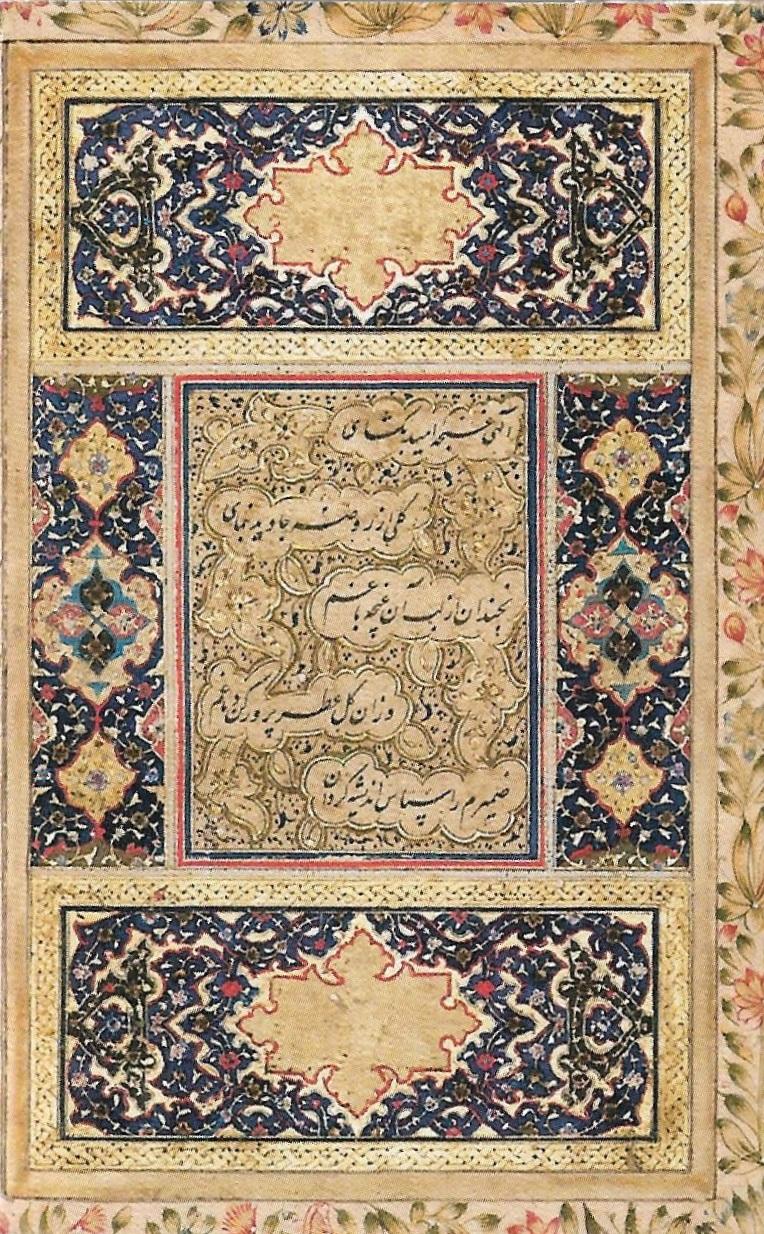 الهی غنچه امید بکشای
کلی از روضه جاوید بنمای
بخندان از لب آن غنچه باغم
وزان کل عطر پرور کن دماغم
ضمیرم را سپاس اندیشه کردان